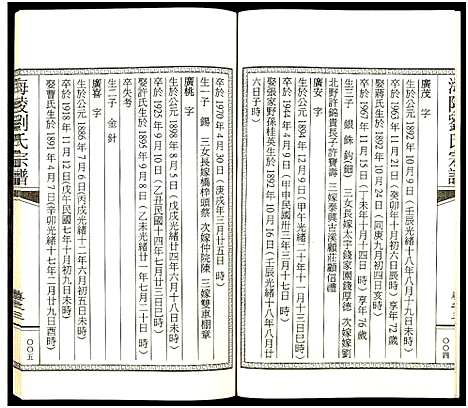 海陵劉氏宗譜
廣茂 字
生於公元1892年10月9日(壬辰光緒十八年八月十九日丑時)
卒於公元1963年11月21日(癸卯十月初六日辰時)享年72歲
娶蔣氏生於1892年10月29日(同庚九月初四日亥時)
卒於公元1967年11月15日(丁未年十月十四日)享年76歲
生三子 銀 銖 鈞(鈿) 三女長嫁太字錢家園錢厚德 次嫁嫁劉
北野許錦貴長子許寶壽 三嫁泰興古溪顧莊顧佰禮
廣安 字
生於公元1894年12月9日(甲午光緒二十年十一月十三日巳時)
卒於公元1944年4月9日(甲申民國卅三年三月十七日)
娶張家野孫桂英生於1892年10月16日(壬辰光緒十八年八月廿
六日子時)
〇〇四
卒於1970年4月30日(庚戌年三月廿五日 時)
生一子 錫 三女長嫁橋梓頭祭 次嫁仲院陳 三嫁雙車棚章
廣桃 字
生於公元1898年8月5日(戊戌光緒廿四年六月十八日未時)
卒於公元1925年9月10日(乙丑民國十四年七月廿三日 時)
娶許氏生於1895年9月8日(乙未光緒廿一年七月二十日 時)
卒失考
廣喜 字
生二子 金 針
生於公元1886年7月6日(丙戌光緒十二年六月初五日未時)
卒於1918年11月12日(戊午民國七年十月初九日未時)
娶曹氏生於1891年4月7日(辛卯光緒十七年二月廿九日酉時)
海陵劉氏宗譜
〇〇五